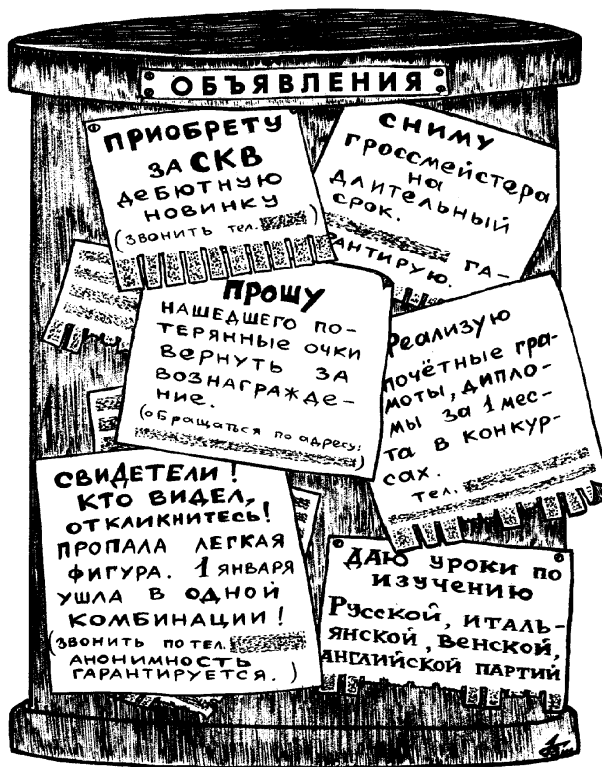 ОБЪЯВЛЕНИЯ
ПРИОБРЕТУ
ЗА СКВ
ДЕБЮТНУЮ
НОВИНКУ
(ЗВОНИТЬ ТЕЛ. )
СНИМУ
ГРОССМЕЙСТЕРА
НА
ДЛИТЕЛЬНЫЙ
СРОК.
ГА-
РАНТИРУЮ.
ПРОШУ
НАШЕДШЕГО ПО-
ТЕРЯННЫЕ ОЧКИ
ВЕРНУТЬ ЗА
ВОЗНАГРАЖДЕ-
НИЕ.
(ОБРАЩАТЬСЯ ПО АДРЕСУ:
)
РЕАЛИЗУЮ
ПОЧЁТНЫЕ ГРА-
МОТЫ, ДИПЛО-
МЫ ЗА 1 МЕС-
ТА В КОНКУР-
САХ.
ТЕЛ.
СВИДЕТЕЛИ!
КТО ВИДЕЛ,
ОТКЛИКНИТЕСЬ!
ПРОПАЛА ЛЕГКАЯ
ФИГУРА. 1 ЯНВАРЯ
УШЛА В ОДНОЙ
КОМБИНАЦИИ!
(ЗВОНИТЬ ПО ТЕЛ.
АНОНИМНОСТЬ
ГАРАНТИРУЕТСЯ. )
ДАЮ УРОКИ ПО
ИЗУЧЕНИЮ
РУССКОЙ, ИТАЛЬ-
ЯНСКОЙ, ВЕНСКОЙ,
АНГЛИЙСКОЙ ПАРТИЙ